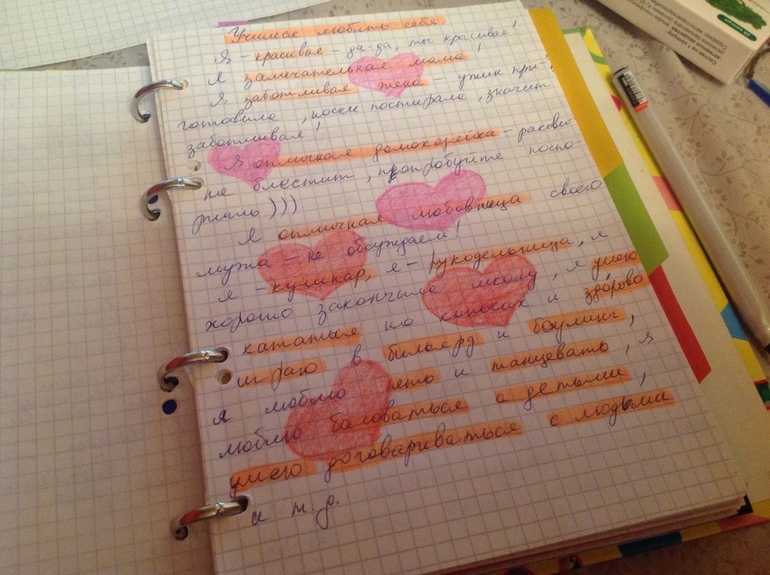 Учимся любить себя
Я – красивая – да-да, ты красивая!
Я замечательная мама!
Я заботливая жена – ужин при-
готовила, носки постирала, значит
заботливая!
Я отличная домохозяйка – раковина
не блестит, попробуйте поспо-
рить)))
Я отличная любовница своего
мужа – не обсуждаем!
Я – кулинар, я – рукодельница, я
хорошо закончила школу, я умею
кататься на коньках и здорово
играю в бильярд и боулинг,
я люблю петь и танцевать, я
люблю баловаться с детьми,
умею договариваться с людьми
и т.д.